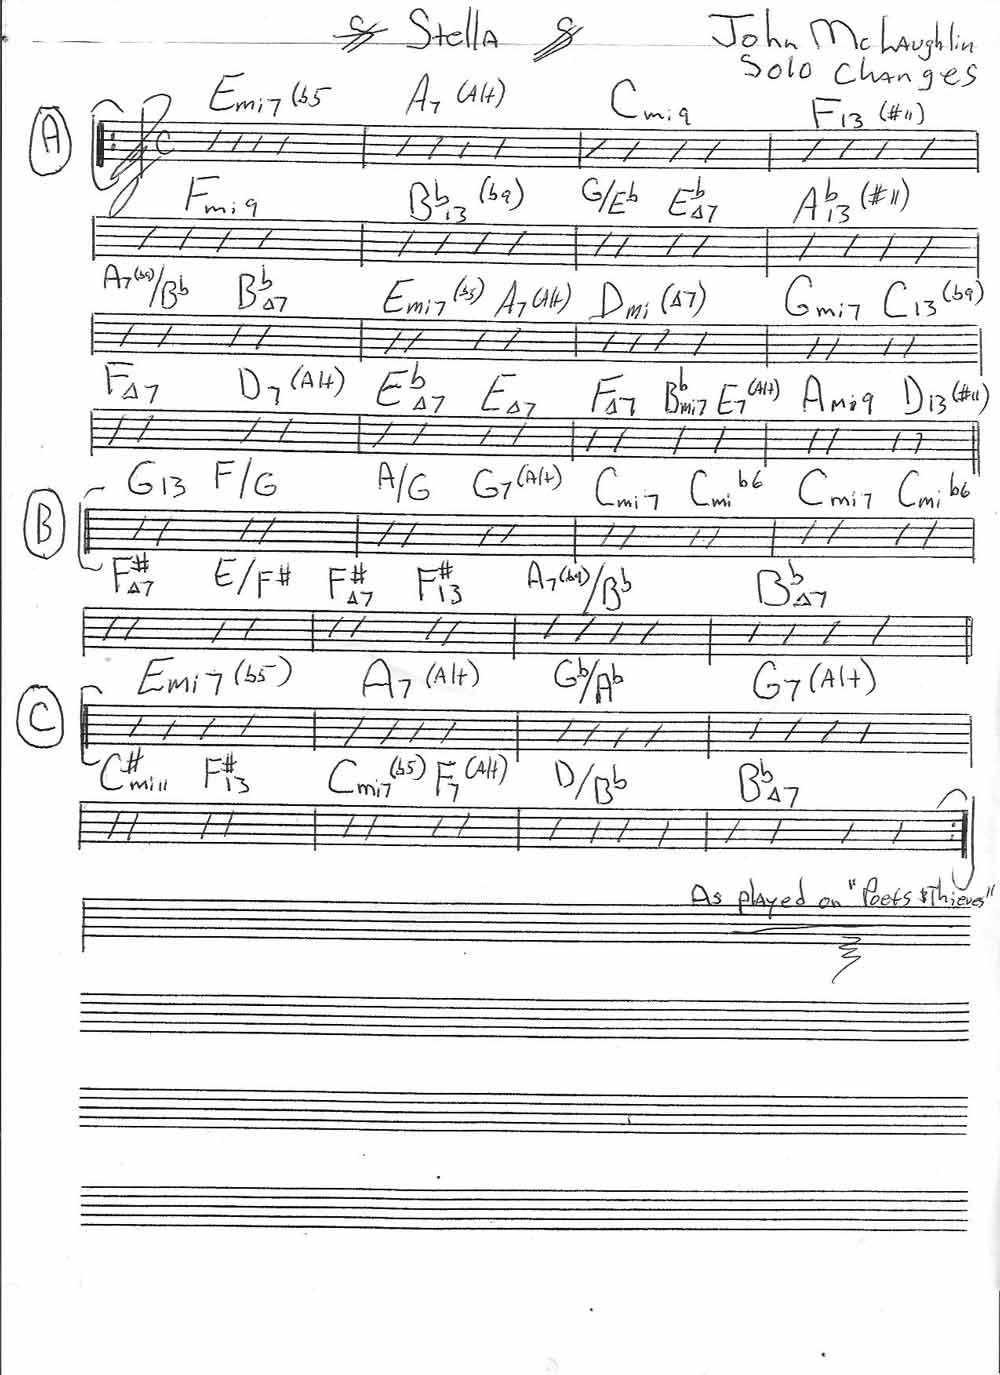 Stella
John McLaughlin
Solo Changes
A
Emi7(b5 A7(Alt) Cmi9 F13(#11)
Fmi9 Bb13(b9) G/Eb EbΔ7 Ab13(#11)
A7(b9)/Bb BbΔ7 Emi7(b5) A7(Alt) Dmi(Δ7) Gmi7 C13(b9)
FΔ7 D7(Alt) EbΔ7 EΔ7 FΔ7 Bbmi7 E7(Alt) Ami9 D13(#11)
B
G13 F/G A/G G7(Alt) Cmi7 Cmib6 Cmi7 Cmib6
F#Δ7 E/F# F#Δ7 F#13 A7(b9)/Bb BbΔ7
C
Emi7(b5) A7(Alt) Gb/Ab G7(Alt)
C#mi11 F#13 Cmi7(b5) F7(Alt) D/Bb BbΔ7
As played on "Poets & Thieves"